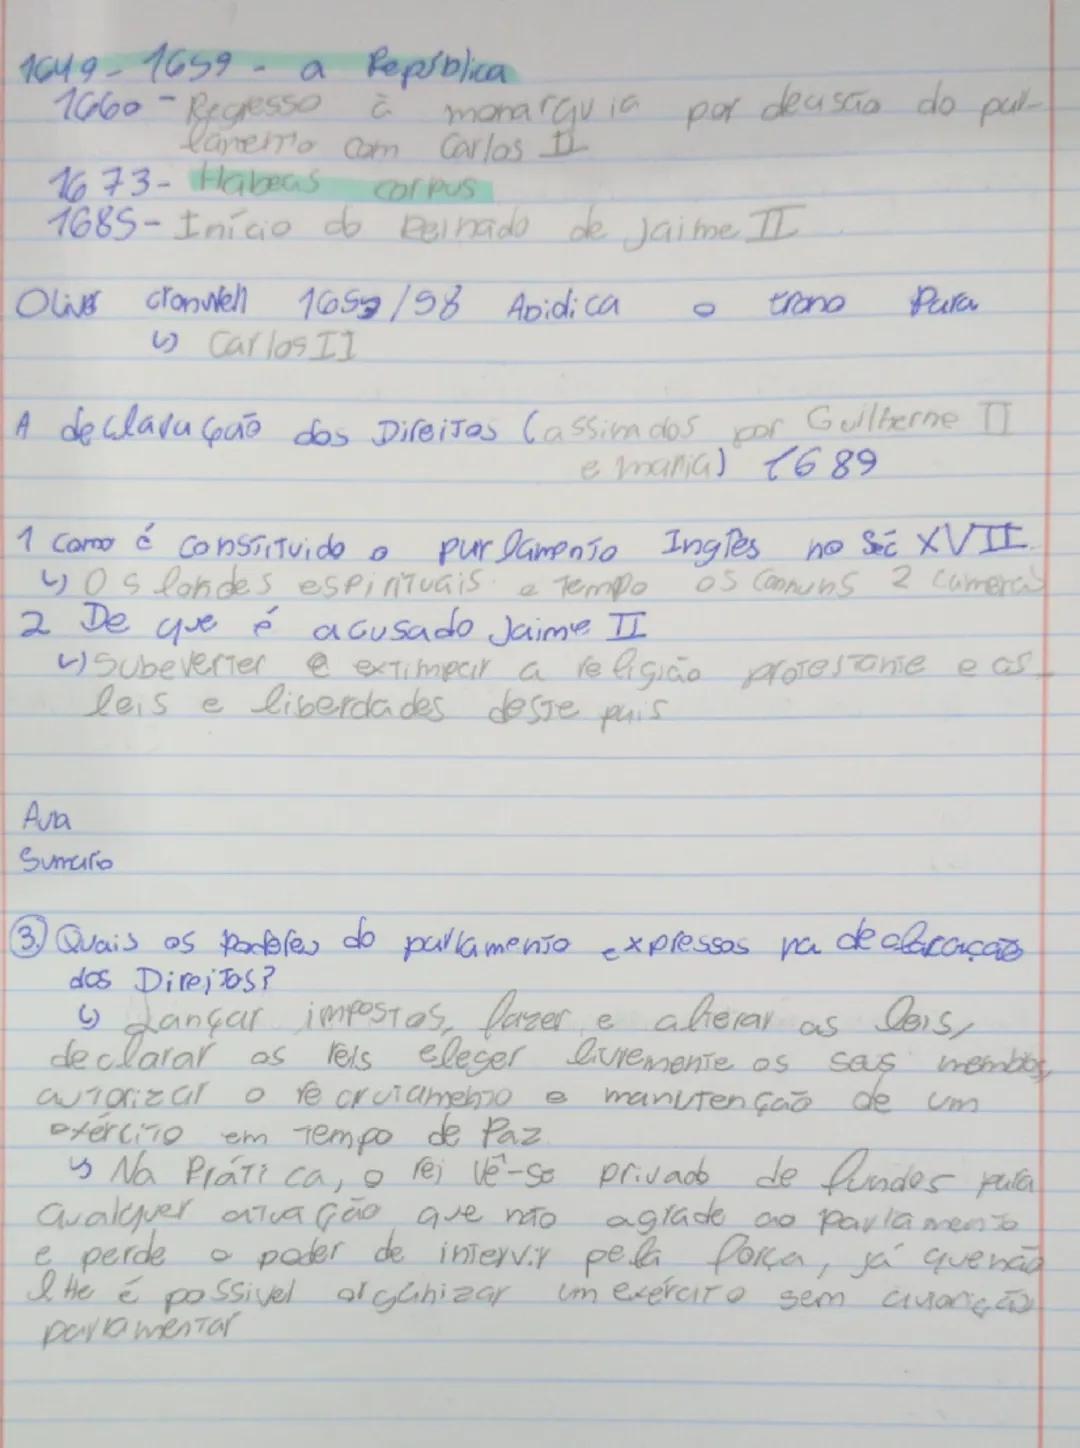 1649 - 1659 - a República
1660 - Regresso à monarquia por decisão do par-
lamento com Carlos II
1673 - Habeas corpus
1685 - Início do Reinado de Jaime II
Oliver Cromwell 1653/58 Abidica o trono Para
↳ Carlos II
A declaração dos Direitos (assinados por Guilherme II
e maria) 1689
1 Como é constituido o parlamento Inglês no Séc XVII
↳ Os lordes espirituais e tempo os comuns 2 camaras
2 De que é acusado Jaime II
↳ Subeverter e extimpar a religião protestante e as
leis e liberdades deste pais
Sumario
3. Quais os poderes do parlamento expressos na declaração
dos Direitos?
↳ Lançar impostos, fazer e alterar as leis,
declarar os reis eleger livremente os seus membros,
autorizar o recrutamento e manutenção de um
exército em tempo de Paz
↳ Na Prática, o rei vê-se privado de fundos para
qualquer atuação que não agrade ao parlamento
e perde o poder de intervir pela força, já que não
lhe é possivel organizar um exército sem
parlamentar